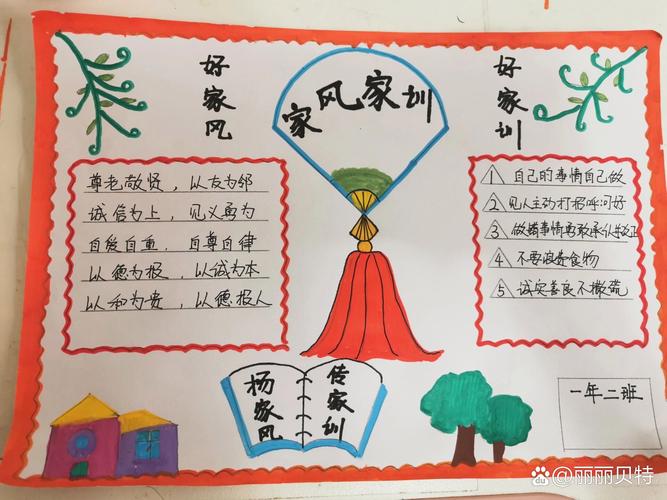 好家风
家风家训
好家训
尊老敬贤，以友为邻
诚信为上，见义勇为
自爱自重，自尊自律
以德为报，以诚为本
以和为贵，以德报人
1 自己的事情自己做
2 见人主动打招呼问好
3 做错事情勇敢承认改正
4 不要浪费食物
5 诚实善良不撒谎
杨家风
传家训
一年二班
@丽丽贝特